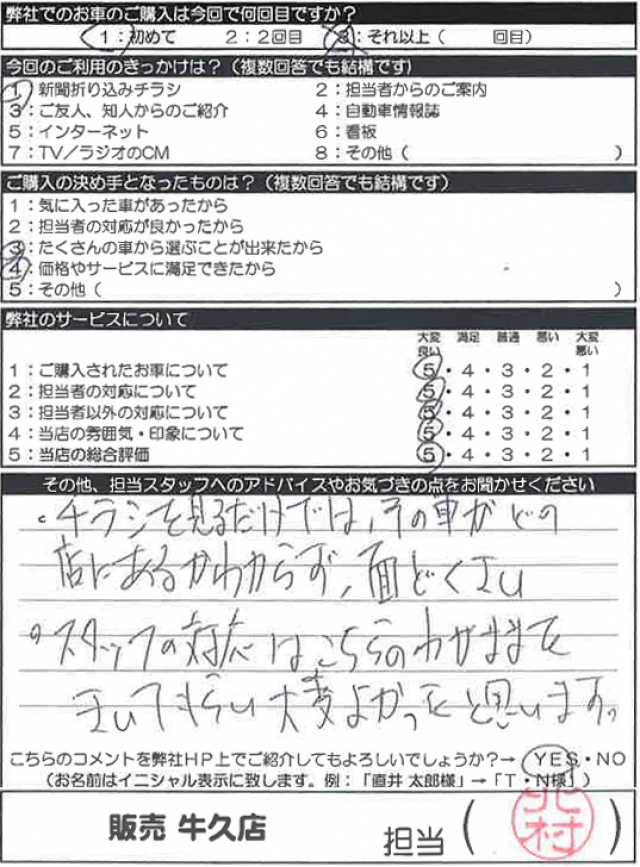 弊社でのお車のご購入は今回で何回目ですか?
1:初めて 2:2回目 3:それ以上( 回目)
今回のご利用のきっかけは?(複数回答でも結構です)
1:新聞折り込みチラシ 2:担当者からのご案内
3:ご友人、知人からのご紹介 4:自動車情報誌
5:インターネット 6:看板
7:TV/ラジオのCM 8:その他( )
ご購入の決め手となったものは?(複数回答でも結構です)
1:気に入った車があったから
2:担当者の対応が良かったから
3:たくさんの車から選ぶことが出来たから
4:価格やサービスに満足できたから
5:その他( )
弊社のサービスについて
大変良い 満足 普通 悪い 大変悪い
1:ご購入されたお車について 5・4・3・2・1
2:担当者の対応について 5・4・3・2・1
3:担当者以外の対応について 5・4・3・2・1
4:当店の雰囲気・印象について 5・4・3・2・1
5:当店の総合評価 5・4・3・2・1
その他、担当スタッフへのアドバイスやお気づきの点をお聞かせください
。チラシを見るだけでは、その車がどの
店にあるかわからず、面どくさい
。スタッフの対応はこちらのわがままを
きいてもらい大変よかったと思います。
こちらのコメントを弊社HP上でご紹介してもよろしいでしょうか?→ YES・NO
(お名前はイニシャル表示に致します。例:「直井 太郎様」→「T・N様」)
販売 牛久店 担当( 北村 )